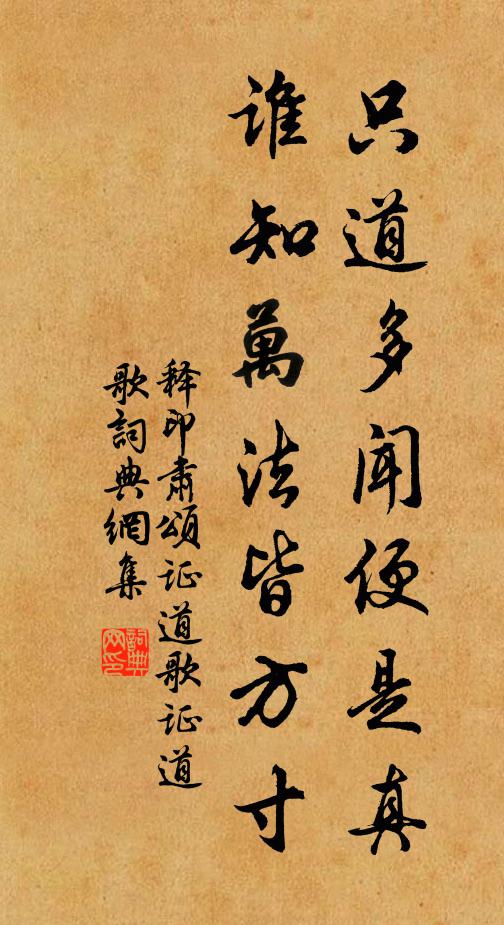 只道多闻便是真
谁知萬法皆方寸
释印肃颂证道歌证道
歌詞典網集
詞典网印